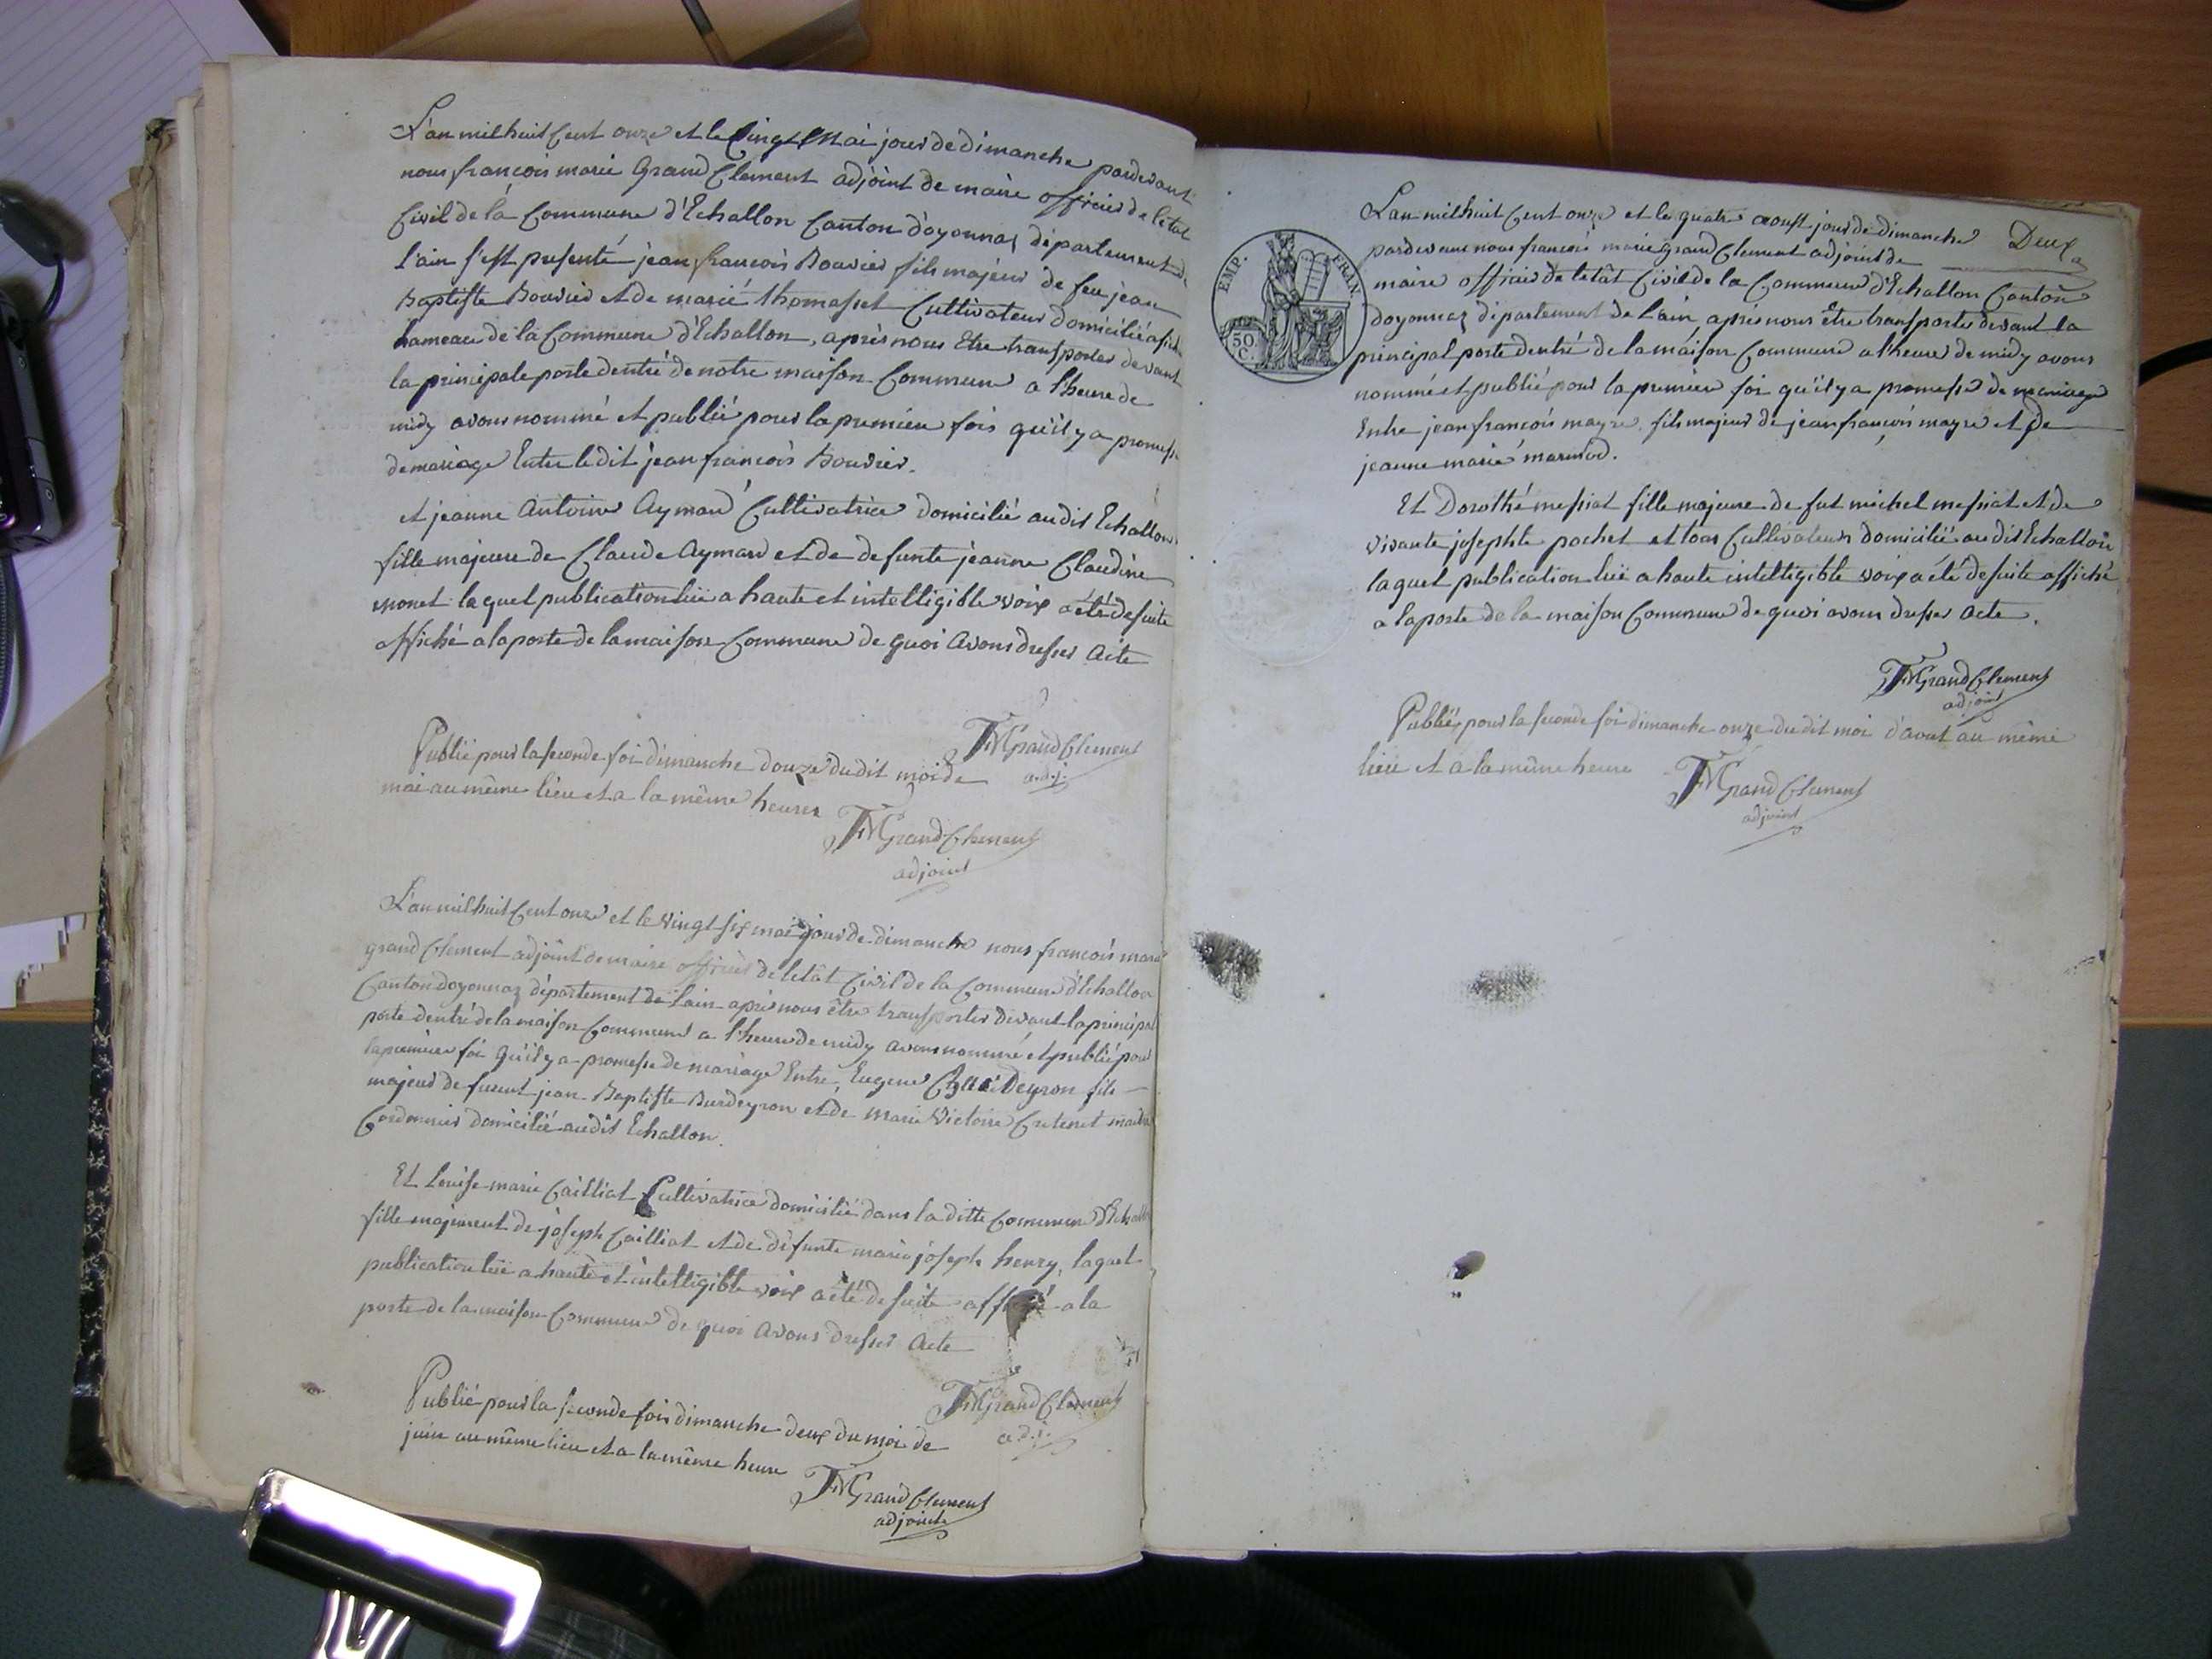 L'an mil huit Cent onze et le Cinq Mai jour de dimanche pardevant
nous françois marie Grand Clement adjoint de maire officier de letat
Civil de la Commune d'Echallon Canton d'oyonnaz département de
l'ain s'est presenté jean françois Bouvier fils majeur de feu jean
Baptiste Bouvier et de marie thomasset Cultivateur domicilié
hameau de la Commune d'Echallon, après nous Etre transporter devant
la principale porte dentré de notre maison Commune a l'heure de
midy avons nommé et publié pour la premieu fois qu'il y a promesse
de mariage Entre ledit jean françois Bouvier.
et jeanne Antoine Aymard Cultivatrice domicilié audit Echallon
fille majeure de Claude Aymard et de defunte jeanne Claudine
monet laquel publication luë a haute et intelligible voix a été desuite
affiché a la porte de la maison Commune de quoi avons dresser Acte
FMGrandClement
adj.
Publié pour la seconde foi dimanche douze dudit moi de
mai au même lieu et a la même heures
FMGrandClement
adjoint
L'an mil huit Cent onze et le vingt six mai jour de dimanche nous françois marie
grand Clement adjoint de maire officier de letât Civil de la Commune d'Echallon
Canton doyonnaz département de l'ain après nous être transporter devant la principal
porte dentré de la maison Commune a l'heure de midy avons nommé et publié pour
la premieu foi qu'il y a promesse de mariage Entre, Eugene Burdeyron fils
majeur de jean Baptiste Burdeyron et de Marie Victoire Cretenet
Cordonnier domicilié audit Echallon.
Et Louise marie Cailliat Cultivatrice domicilié dans la ditte Commune d'Echallon
fille majeure de joseph Cailliat et de defunte marie joseph henry, laquel
publication luë a haute et intelligible voix a été desuite affiché a la
porte de la maison Commune de quoi avons dresser Acte
FMGrandClement
adj.
Publié pour la seconde fois dimanche deux du moi de
juin au même lieu et a la même heure
FMGrandClement
adjoint
EMP. FRAN.
50 C.
Deux
L'an mil huit Cent onze et le quatre aoust jour de dimanche
pardevant nous françois marie grand Clement adjoint de
maire officier de letât Civil de la Commune d'Echallon Canton
doyonnaz département de l'ain, apres nous être transporter devant la
principal porte dentré de la maison Commune a l'heure de midy avons
nommé et publié pour la premieu foi qu'il y a promesse de mariage
Entre jean françois mayre fils majeur de jean françois mayre et de
jeanne marie marmod.
Et Dorothé messiat fille majeure de fut michel messiat et de
vivante josephte pochet et tous Cultivateurs domicilié audit Echallon
laquel publication luë a haute intelligible voix a été desuite affiché
a la porte de la maison Commune de quoi avons dresser acte.
FMGrandClement
adjoint
Publiée pour la seconde foi dimanche onze dudit moi d'aout au même
lieu et a la même heure
FMGrandClement
adjoint